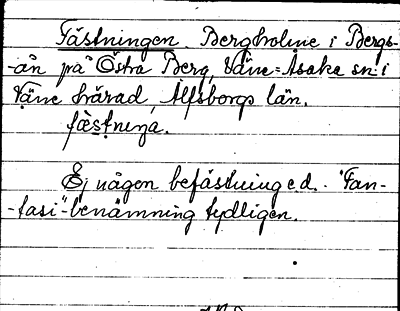 Fästningen. Bergholme i Bergs-
-ån på Östra Berg, Väne-Åsaka sn. i
Väne härad, Älfsborgs län.
fæstnıŋa.
Ej någon befästning e.d. "Fan-
-tasi"-benämning tydligen.